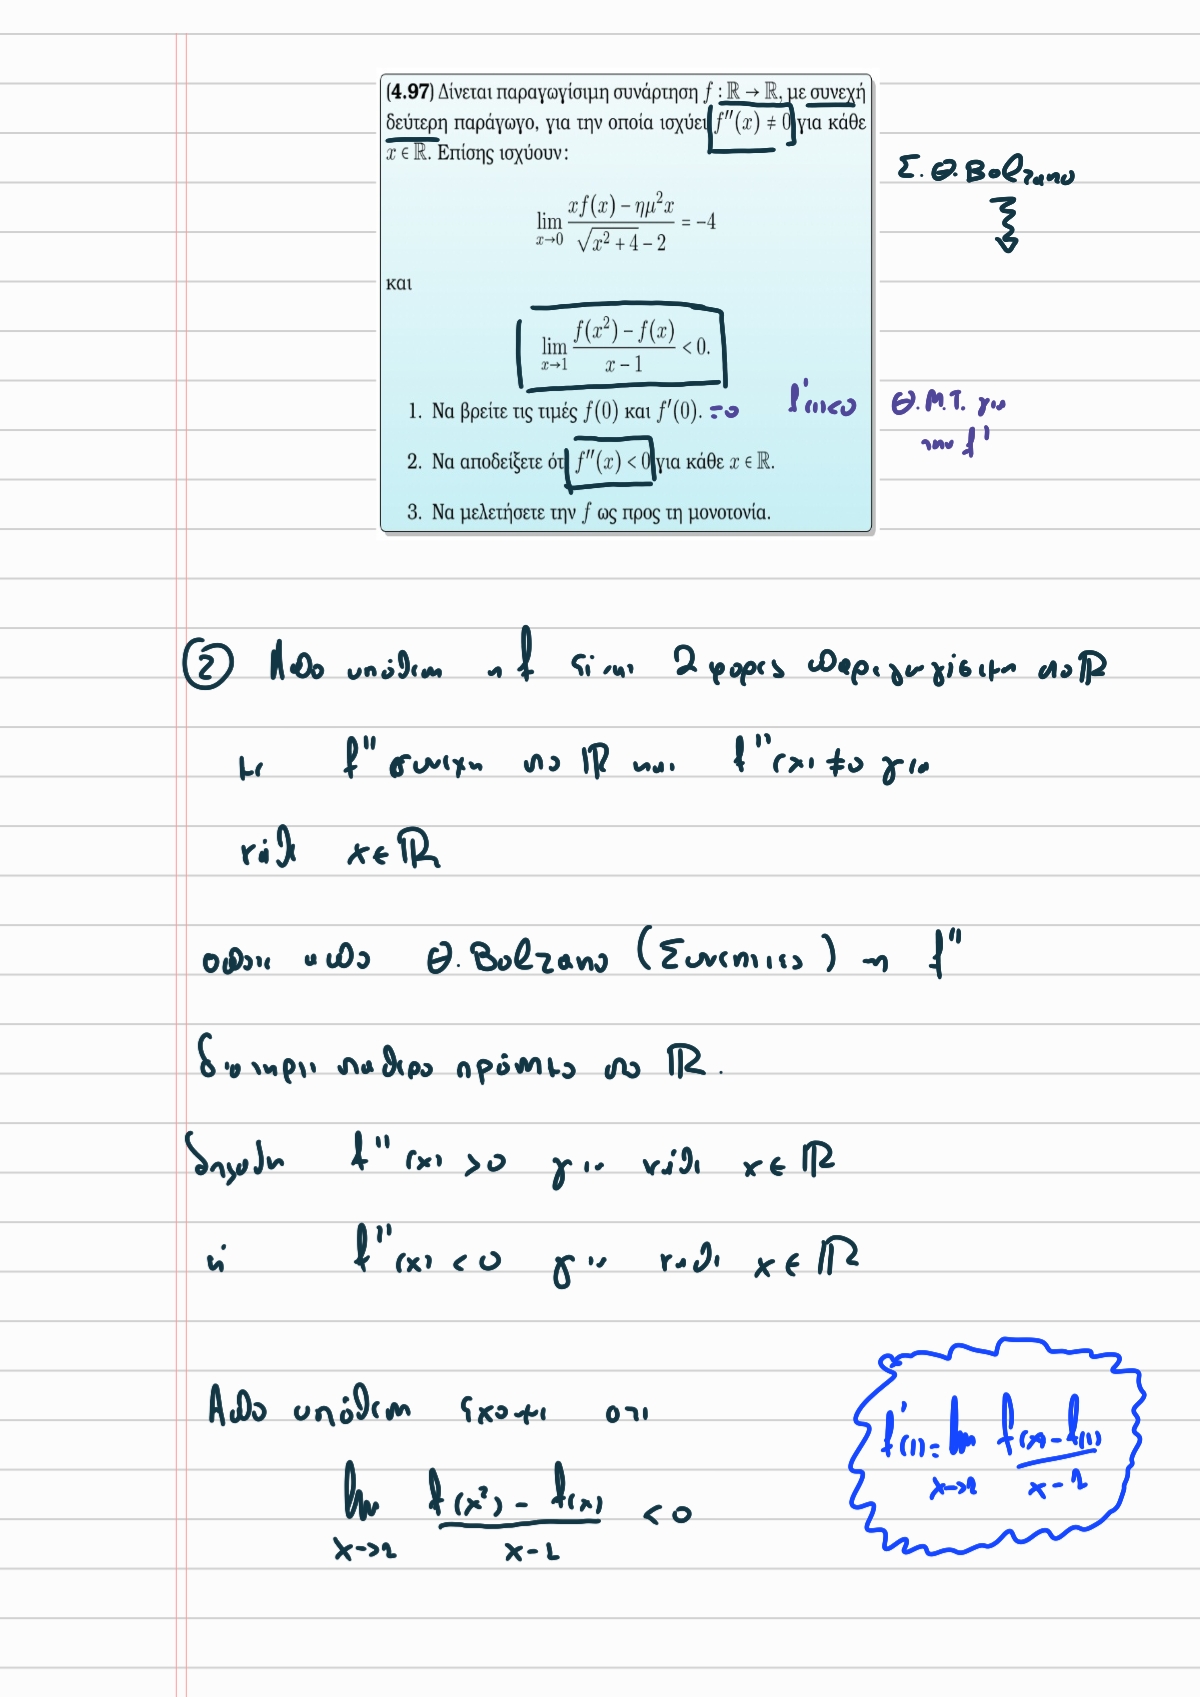 (4.97) Δίνεται παραγωγίσιμη συνάρτηση f : ℝ → ℝ, με συνεχή
δεύτερη παράγωγο, για την οποία ισχύει f''(x) ≠ 0 για κάθε
x ∈ ℝ. Επίσης ισχύουν:
lim_{x→0} (xf(x) − ημ²x)/(√(x² + 4) − 2) = −4
και
lim_{x→1} (f(x²) − f(x))/(x − 1) < 0.
1. Να βρείτε τις τιμές f(0) και f'(0). =0
2. Να αποδείξετε ότ f''(x) < 0 για κάθε x ∈ ℝ.
3. Να μελετήσετε την f ως προς τη μονοτονία.
Σ. Θ. Bolzano
f'(1)<0
Θ.Μ.Τ. για
την f'
② Από υπόθεση η f είναι 2 φορές παραγωγίσιμη στο ℝ
με f'' συνεχή στο ℝ και f''(x) ≠0 για
κάθε x∈ℝ
οπότε από Θ. Bolzano (Συνέπειες) η f''
διατηρεί σταθερό πρόσημο στο ℝ.
δηλαδή f''(x) >0 για κάθε x∈ℝ
ή f''(x) <0 για κάθε x∈ℝ
Από υπόθεση έχουμε ότι
lim_{x→1} (f(x²) − f(x))/(x−1) < 0
f'(1)= lim_{x→1} (f(x) − f(1))/(x−1)